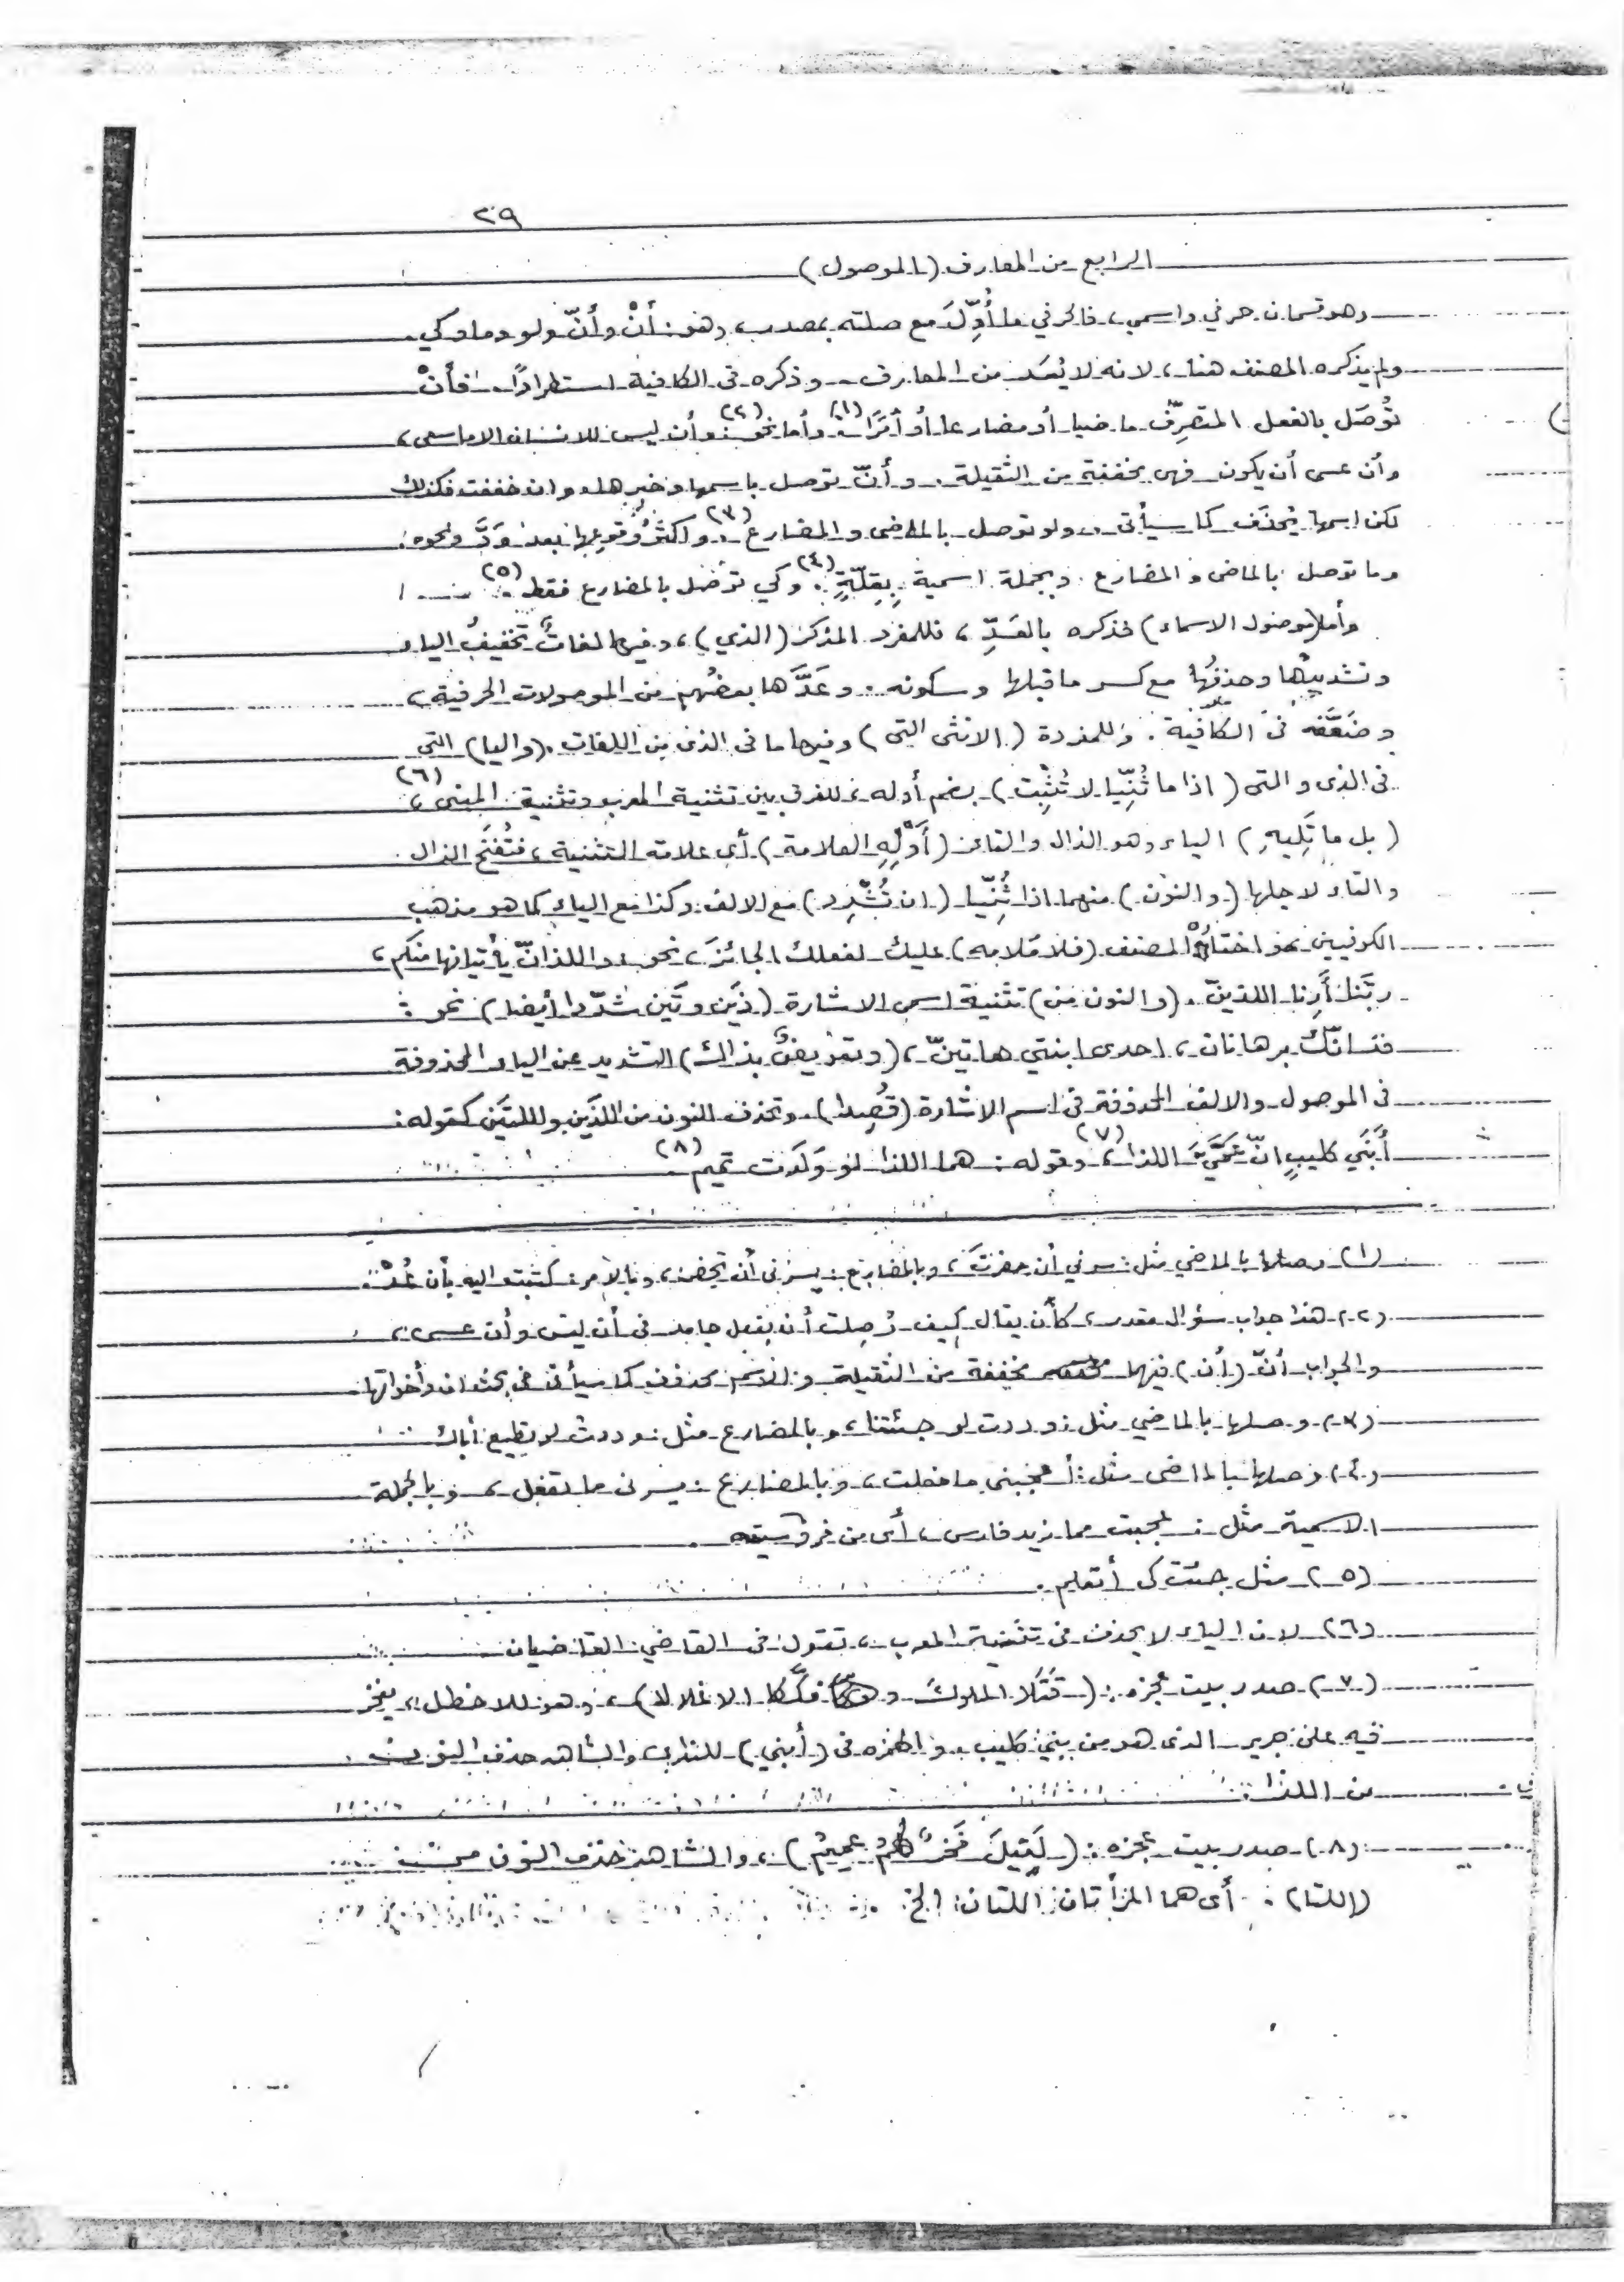 ٢٩
الرابع من المعارف (الموصول)
وهو قسمان حرفي واسمي، فالحرفي ما أُوِّلَ مع صلته بمصدر، وهو: أنْ وأنّ ولو وما وكي.
ولم يذكره المصنف هنا، لانه لا يُعَد من المعارف وذكره في الكافية استطرادًا. فأنْ
تُوصَل بالفعل المتصرِّف ماضيا أو مضارعا أو أمرًا (١). وأما نحو (٢) وأن ليس للانسان الا ما سعى،
وأن عسى أن يكون فهي مخففة من الثقيلة. وأنّ توصل باسمها وخبرها، وان خففت فكذلك
لكن اسمها يُحذَف كما سيأتي، ولو توصل بالماضي والمضارع (٣). واكثرُ وقوعها بعد وَدَّ ونحوه،
وما توصل بالماضي والمضارع وبجملة اسمية بِقِلّةٍ (٤). وكي توصل بالمضارع فقط (٥).
وأما (موصول الاسماء) فذكره بالعَدِّ، فللمفرد المذكر (الذي)، وفيها لغاتٌ تخفيفُ الياء
وتشديدُها وحذفُها مع كسر ما قبلها وسكونه. وعَدَّها بعضُهم من الموصولات الحرفية،
وضَعَّفه في الكافية. وللمفردة (الانثى التي) وفيها ما في الذي من اللغات. (واليا) التي
في الذي والتي (اذا ما ثُنِّيا لا تُثْبِت) بضم أوله، للفرق بين تثنية المعرب وتثنية المبني (٦)،
(بل ما تَلِيهِ) الياء وهو الذال والتاء (أَوْلِهِ العلامة) أي علامة التثنية، فتُفتَح الذال
والتاء لاجلها (والنون) منهما اذا ثُنِّيا (ان تُشْدَد) مع الالف وكذا مع الياء كما هو مذهب
الكوفيين واختاره المصنف (فلا مَلامه) عليك لفعلك الجائزَ، نحو: واللذانّ يأتيانها منكم،
ربّنا أَرِنا اللذينّ. (والنون من) تثنية اسمي الاشارة (ذَين وتَين شُدّدا أيضا) نحو:
فذانّك برهانان، احدى ابنتي هاتينّ، (وتعويضٌ بذاك) التشديد عن الياء المحذوفة
في الموصول والالف المحذوفة في اسم الاشارة (قُصِدا). وتحذف النون من اللذَين واللتَين كقوله:
أَبَنَي كليبٍ انّ عَمَّيَّ اللذا (٧)، وقوله: هما اللتا لو وَلَدت تميم (٨).
(١) وصلها بالماضي مثل: سرني أن حضرتَ، وبالمضارع: يسرني أن تحضر، وبالامر: كتبت اليه بأن عُدْ.
(٢) هذا جواب سؤال مقدر، كأن يقال كيف وُصِلت أن بفعل جامد في أن ليس وأن عسى،
والجواب أنّ (أن) فيهما مخففة من الثقيلة والاسم محذوف كما سيأتي في بحث ان وأخواتها.
(٣) وصلها بالماضي مثل: وددت لو جئتنا، وبالمضارع مثل: وددت لو تطيع أباك
(٤) وصلها بالماضي مثل: أعجبني ما فعلت، وبالمضارع: يسرني ما تفعل، وبالجملة
الاسمية مثل: عجبت مما زيد فارس، أي من فروسيته.
(٥) مثل جئت كي أتعلم.
(٦) لان الياء لا يحذف في تثنية المعرب، تقول في القاضي: القاضيان
(٧) صدر بيت عجزه: (قَتَلا الملوكَ وفكّكا الاغلالا)، وهو للاخطل، يفخر
فيه على جرير الذي هو من بني كليب. والهمزه في (أبني) للنداء، والشاهد حذف النون
من اللذا.
(٨) صدر بيت عجزه: (لَقِيلَ فَخرٌ لهُمُ عميمُ)، والشاهد حذف النون من
(اللتا). أي هما المرأتان اللتان الخ.